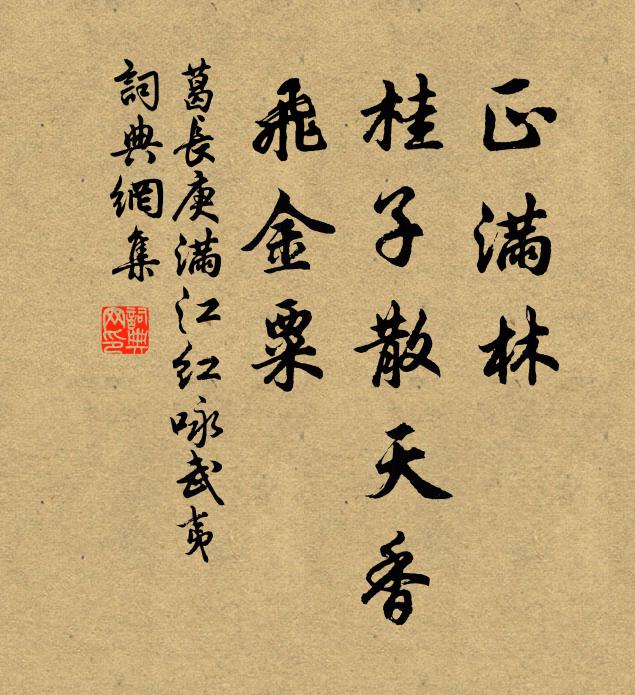 正满林
桂子散天香
飛金粟
葛長庚满江红咏武夷
詞典網集
詞典网印